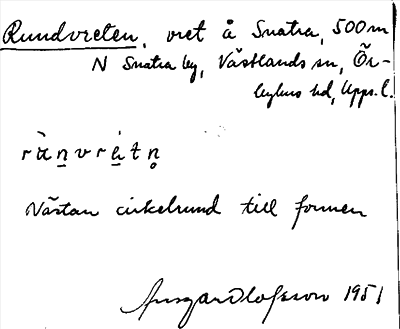 Rundvreten, vret å Snatra, 500 m
N Snatra by, Västlands sn, Ör-
byhus hd, Upps. l.
rànvrétn̥
Nästan cirkelrund till formen
Ansgar Olofsson 1951